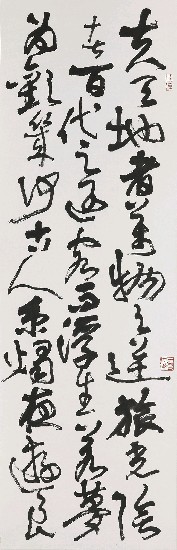 夫天地者萬物之逆旅光陰
者百代之過客而浮生若夢
為歡幾何古人秉燭夜遊良